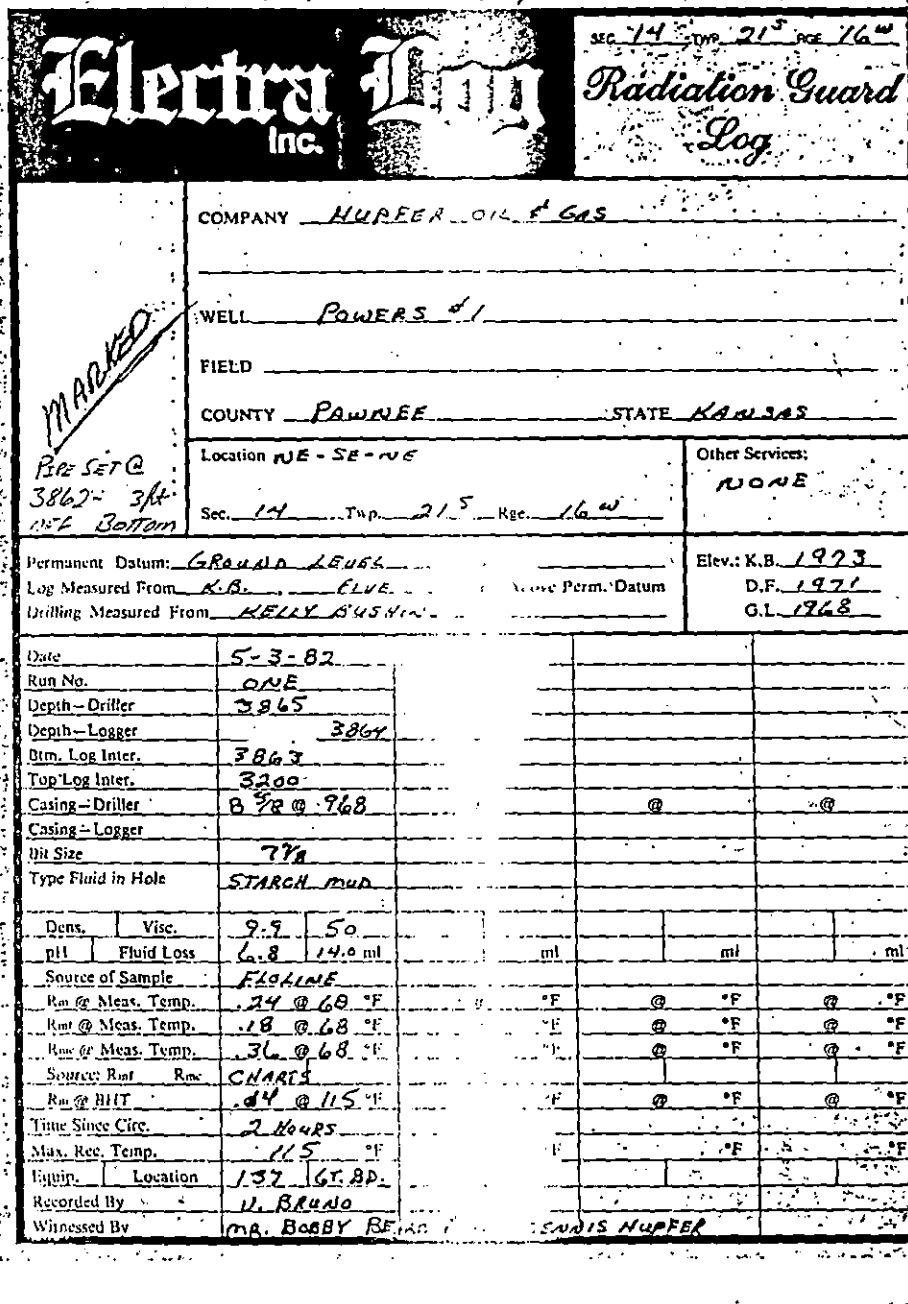 SEC 14 TWP 21 S RGE 16 W
Electra Log
Inc.
Radiation Guard
Log
COMPANY HUPFER OIL & GAS
WELL POWERS #1
FIELD
COUNTY PAWNEE STATE KANSAS
MARKED
PIPE SET @
3862- 3ft
OFF Bottom
Location NE-SE-NE
Sec. 14 Twp. 21 S Rge. 16 W
Other Services:
NONE
Permanent Datum: GROUND LEVEL
Log Measured From K.B. FIVE Above Perm. Datum
Drilling Measured From KELLY BUSHIN
Elev.: K.B. 1973
D.F. 1971
G.L. 1968
Date 5-3-82
Run No. ONE
Depth-Driller 3865
Depth-Logger 3864
Btm. Log Inter. 3863
Top Log Inter. 3200
Casing-Driller 8 5/8 @ 968 @ @
Casing-Logger
Bit Size 7 7/8
Type Fluid in Hole STARCH MUD
Dens. Visc. 9.9 50
pH Fluid Loss 6.8 14.0 ml ml ml ml
Source of Sample FLOLINE
Rm @ Meas. Temp. .24 @ 68 °F °F @ °F @ °F
Rmf @ Meas. Temp. .18 @ 68 °F °F @ °F @ °F
Rmc @ Meas. Temp. .36 @ 68 °F °F @ °F @ °F
Source: Rmf Rmc CHARTS
Rm @ BHT .14 @ 115 °F °F @ °F @ °F
Time Since Circ. 2 HOURS
Max. Rec. Temp. 115 °F °F °F °F
Equip. Location 137 GT. BD.
Recorded By V. BRUNO
Witnessed By MR. BOBBY ENNIS HUPFER